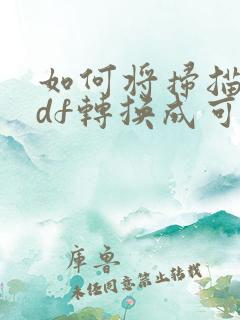 如何將掃描
df轉換成可
庫魯
未經同意禁止轉載